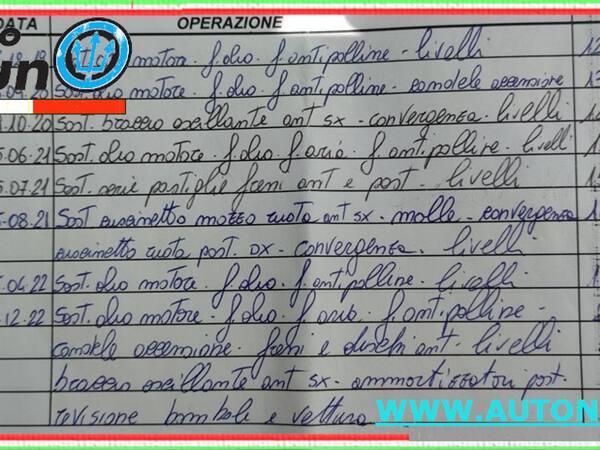 DATA OPERAZIONE
olio motore - f. olio - f. antipolline - livelli
.09.20 Sost. olio motore - f. olio - f. antipolline - candele accensione
.10.20 Sost. braccio oscillante ant sx - convergenza - livelli
.06.21 Sost. olio motore - f. olio - f. aria - f. antipolline - livelli
.07.21 Sost. serie pastiglie freni ant e post - livelli
.08.21 Sost cuscinetto mozzo ruota ant sx - molle - convergenza
cuscinetto ruota post. dx - convergenza - livelli
.04.22 Sost. olio motore - f. olio - f. antipolline - livelli
.12.22 Sost. olio motore - f. olio - f. aria - f. antipolline -
candele accensione - freni e dischi ant - livelli
braccio oscillante ant sx - ammortizzatori post.
revisione bombole e vettura
WWW.AUTON